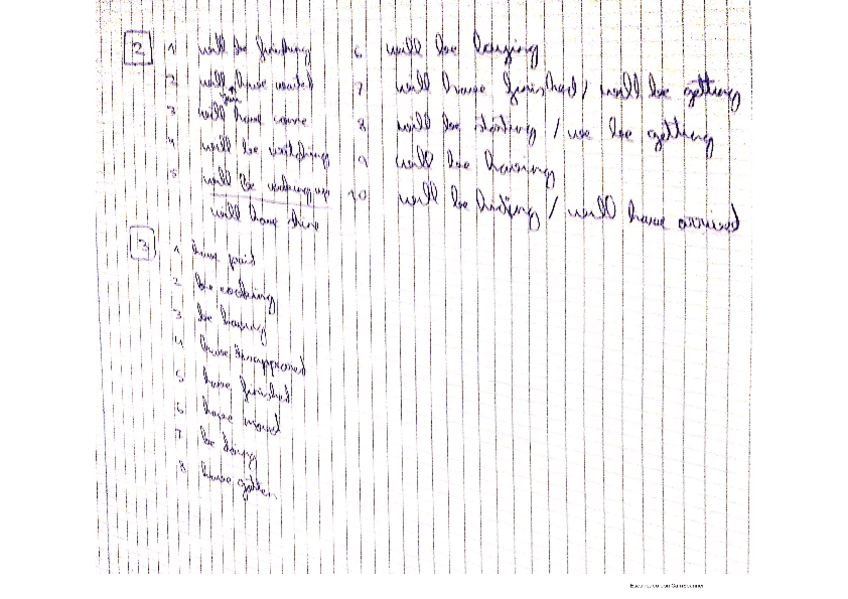 2 1 will be finishing
2 will have watch
3 will have come
4 will be watching
5 will be waking up
will have done
6 will be
7 will have finished / will be getting
8 will be starting / be getting
9 will be having
10 will be / will have arrived
3 1 have paid
2 be cooking
3 be having
4 have disappeared
5 have finished
6 have moved
7 be doing
8 have gotten